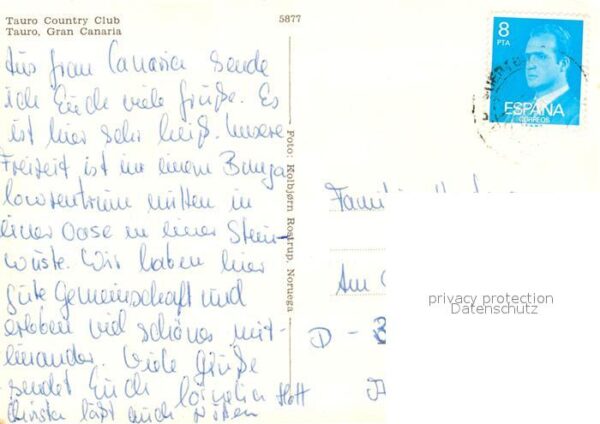 Tauro Country Club
Tauro, Gran Canaria
5877
Aus Gran Canaria sende
ich Euch viele Grüße. Es
ist hier sehr heiß. Unsere
Freizeit ist in einem Bunga
lowzentrum mitten in
einer Oase in einer Stein-
wüste. Wir haben hier
gute Gemeinschaft und
erleben viel schönes mit-
einander. Viele Grüße
sendet Euch Cornelia Hott
Christa läßt auch Grüßen
Foto: Kolbjørn Rostrup, Noruega
8
PTA
ESPAÑA
CORREOS
Familie
Am
D - B
privacy protection
Datenschutz